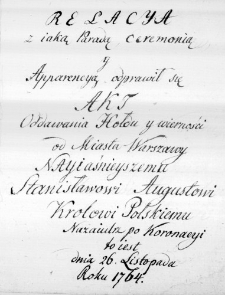 RELACYA
z iaką Paradą Ceremonią
y
Apparencyą odprawił się
AKT
Oddawania Hołdu y wierności
od Miasta Warszawy
NAyiaśnieyszemu
Stanisławowi Augustowi
Krolowi Polskiemu
Nazaiutrz po Koronacyi
to iest
dnia 26. Listopada
Roku 1764.